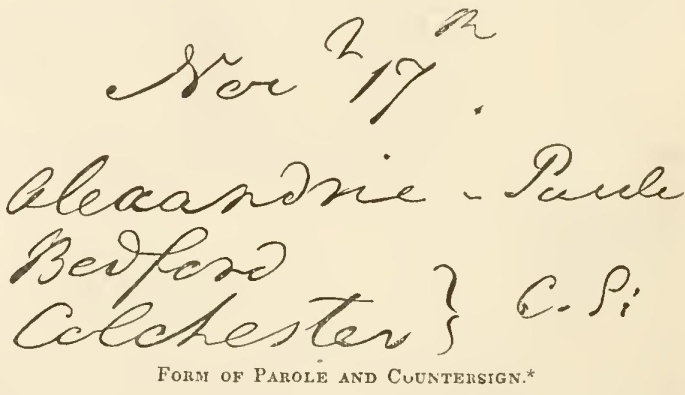 Nov 17th.
Alexandrie - Parole
Bedford
Colchester } C. Si
FORM OF PAROLE AND COUNTERSIGN.*